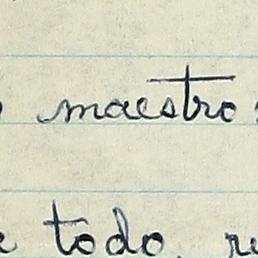 maestro
todo